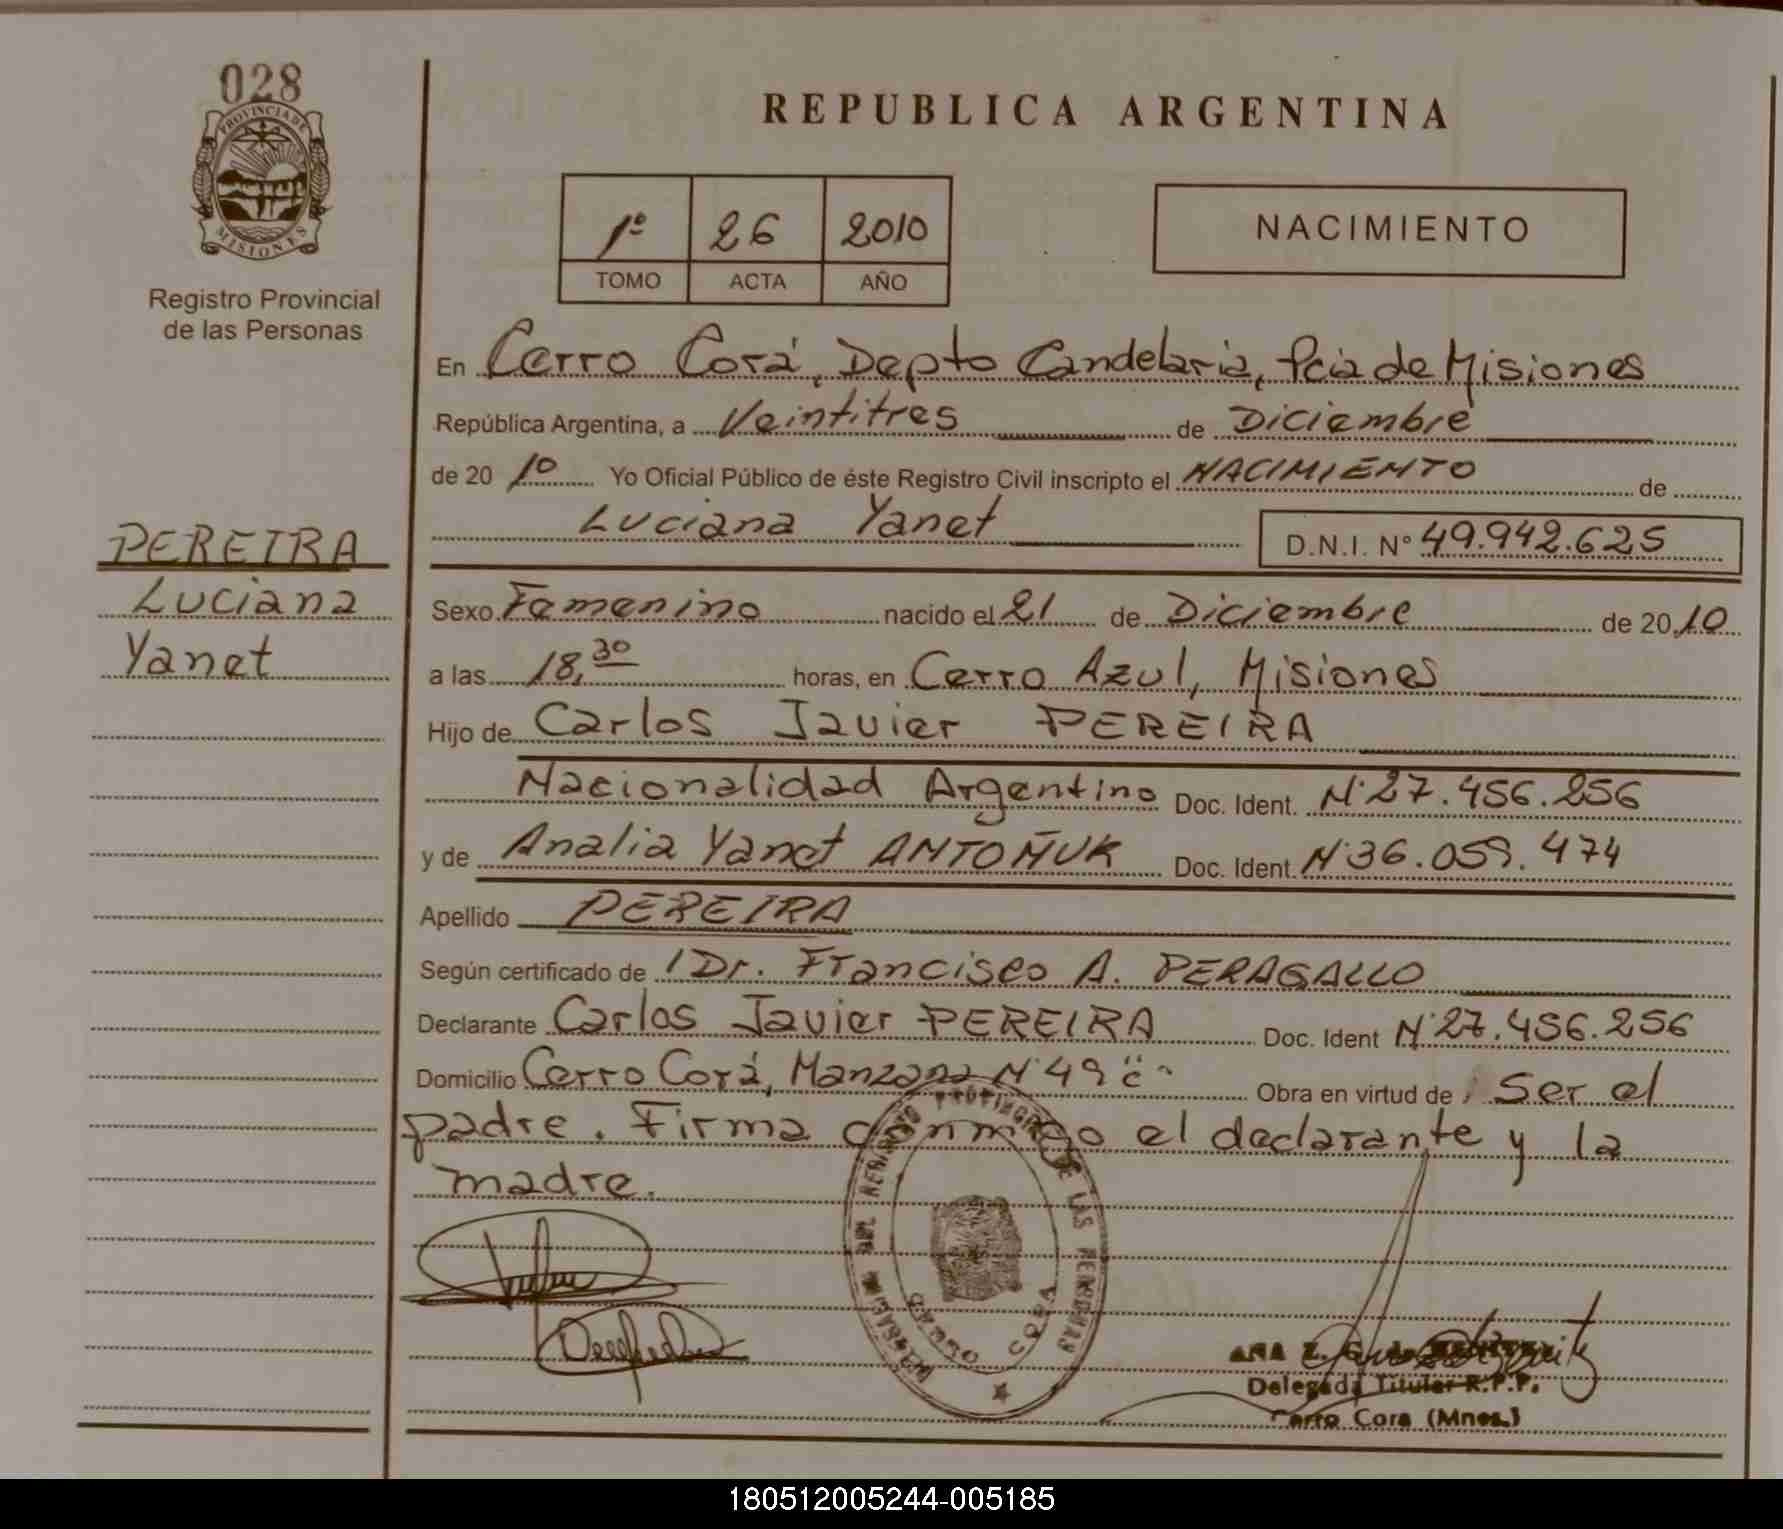 028
PROVINCIA DE
MISIONES
Registro Provincial
de las Personas
PEREIRA
Luciana
Yanet
REPUBLICA ARGENTINA
1º 26 2010
TOMO ACTA AÑO
NACIMIENTO
En Cerro Corá, Depto Candelaria, Pcia de Misiones
República Argentina, a Veintitres de Diciembre
de 20 10 Yo Oficial Público de éste Registro Civil inscripto el NACIMIENTO de
Luciana Yanet D.N.I. Nº 49.942.625
Sexo Femenino nacido el 21 de Diciembre de 20 10
a las 18,30 horas, en Cerro Azul, Misiones
Hijo de Carlos Javier PEREIRA
Nacionalidad Argentino Doc. Ident. Nº 27.456.256
y de Analia Yanet ANTOÑUK Doc. Ident. Nº 36.059.474
Apellido PEREIRA
Según certificado de Dr. Francisco A. PERAGALLO
Declarante Carlos Javier PEREIRA Doc. Ident Nº 27.456.256
Domicilio Cerro Corá, Manzana Nº 49 "c" Obra en virtud de Ser el
padre. Firma conmigo el declarante y la
madre.
REGISTRO PROVINCIAL DE LAS PERSONAS
CERRO CORA
ANA
Delegada Titular R.P.P.
Cerro Cora (Mnes.)
180512005244-005185